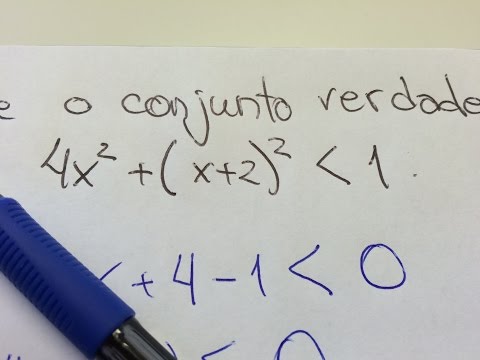 o conjunto verdade
4x² + (x+2)² < 1.
+ 4 - 1 < 0
< 0